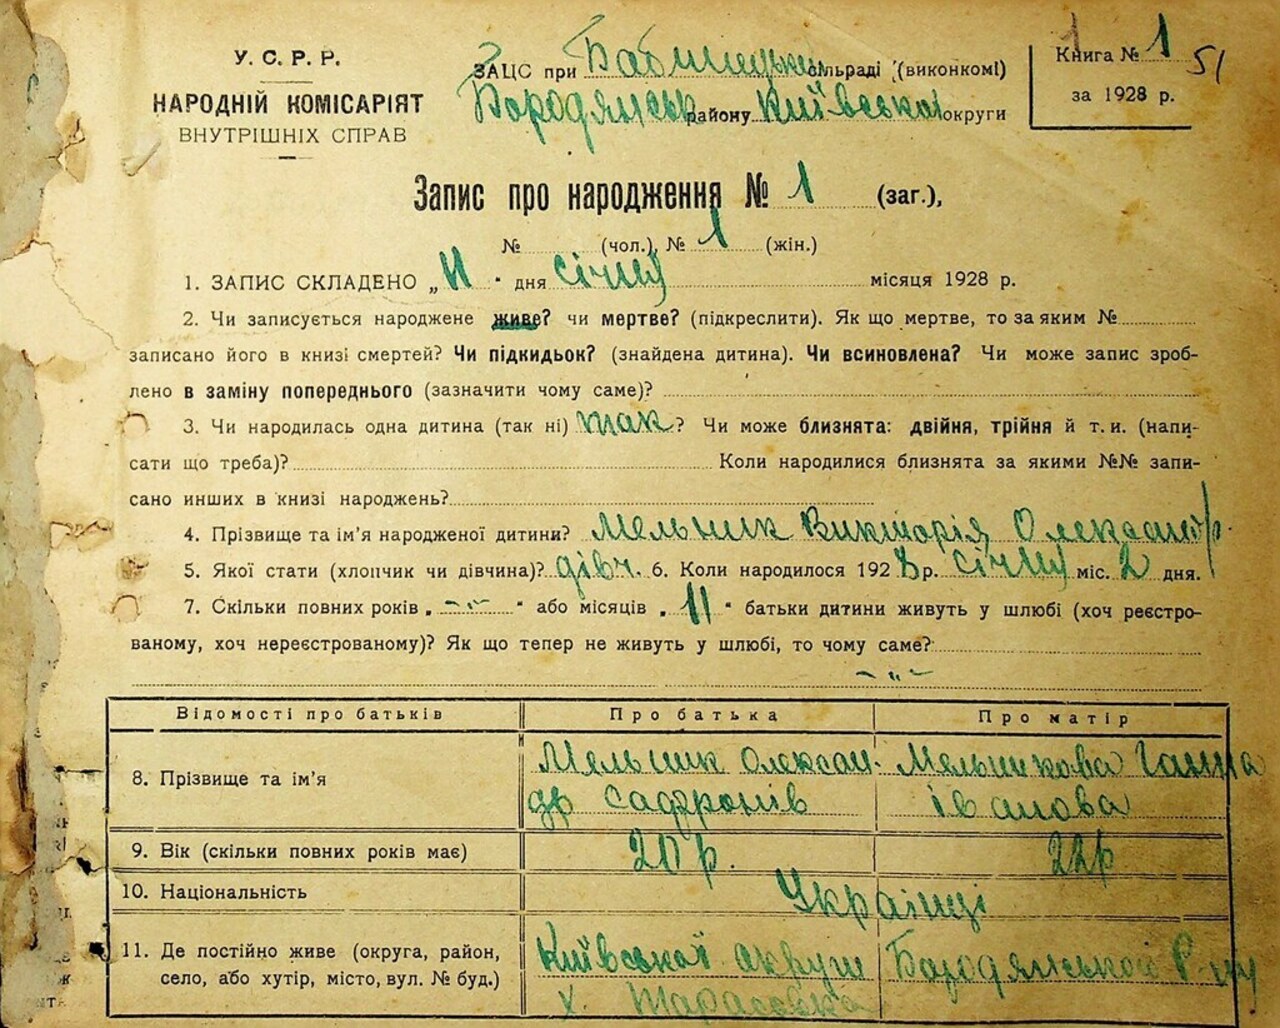 У. С. Р. Р.
НАРОДНІЙ КОМІСАРІЯТ
ВНУТРІШНІХ СПРАВ
ЗАЦС при Бабинецькій сільраді (виконкомі)
Бородянськ району Київської округи
Книга № 1 51
за 1928 р.
Запис про народження № 1 (заг.),
№ (чол.), № 1 (жін.)
1. ЗАПИС СКЛАДЕНО „11" дня січня місяця 1928 р.
2. Чи записується народжене живе? чи мертве? (підкреслити). Як що мертве, то за яким №
записано його в книзі смертей? Чи підкидьок? (знайдена дитина). Чи всиновлена? Чи може запис зроб-
лено в заміну попереднього (зазначити чому саме)?
3. Чи народилась одна дитина (так ні) так? Чи може близнята: двійня, трійня й т. и. (напи-
сати що треба)? Коли народилися близнята за якими №№ запи-
сано инших в книзі народжень?
4. Прізвище та ім'я народженої дитини? Мельник Викторія Олександр.
5. Якої стати (хлопчик чи дівчина)? дівч. 6. Коли народилося 1928 р. січня міс. 2 дня.
7. Скільки повних років „ -"- " або місяців „ 11 " батьки дитини живуть у шлюбі (хоч реєстро-
ваному, хоч нереєстрованому)? Як що тепер не живуть у шлюбі, то чому саме?
-"-
Відомості про батьків Про батька Про матір
8. Прізвище та ім'я Мельник Олексан- Мельникова Ганна
др Сафронів Іванова
9. Вік (скільки повних років має) 20 р. 22 р
10. Національність Українці
11. Де постійно живе (округа, район, Київської округи Бородянської р-ну
село, або хутір, місто, вул. № буд.) х. Тарасовка